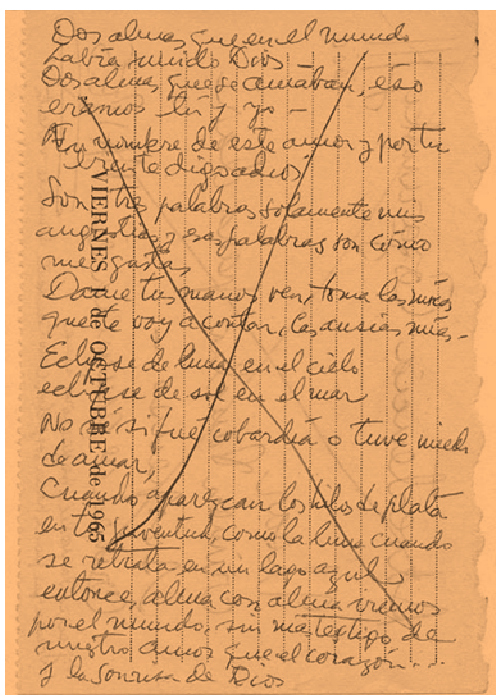 Dos almas que en el mundo
había unido Dios
Dos almas que se amaban, eso
eramos tú y yo -
En nombre de este amor y por tu
bien te digo adios
Son tres palabras solamente mis
angustias y esas palabras son cómo
me gustas
Dame tus manos ven, toma las mías
que te voy a contar, las ansias mías.-
Eclipse de luna en el cielo
eclipse de sol en el mar
No sé si fué cobardía o tuve miedo
de amar,
Cuando aparezcan los hilos de plata
en tu juventud, como la luna cuando
se retrata en un lago azul
entonce, alma con alma iremos
por el mundo, sin mas testigo de
nuestro amor que el corazón...
y la Sonrisa de Dios
VIERNES 1 de OCTUBRE de 1965